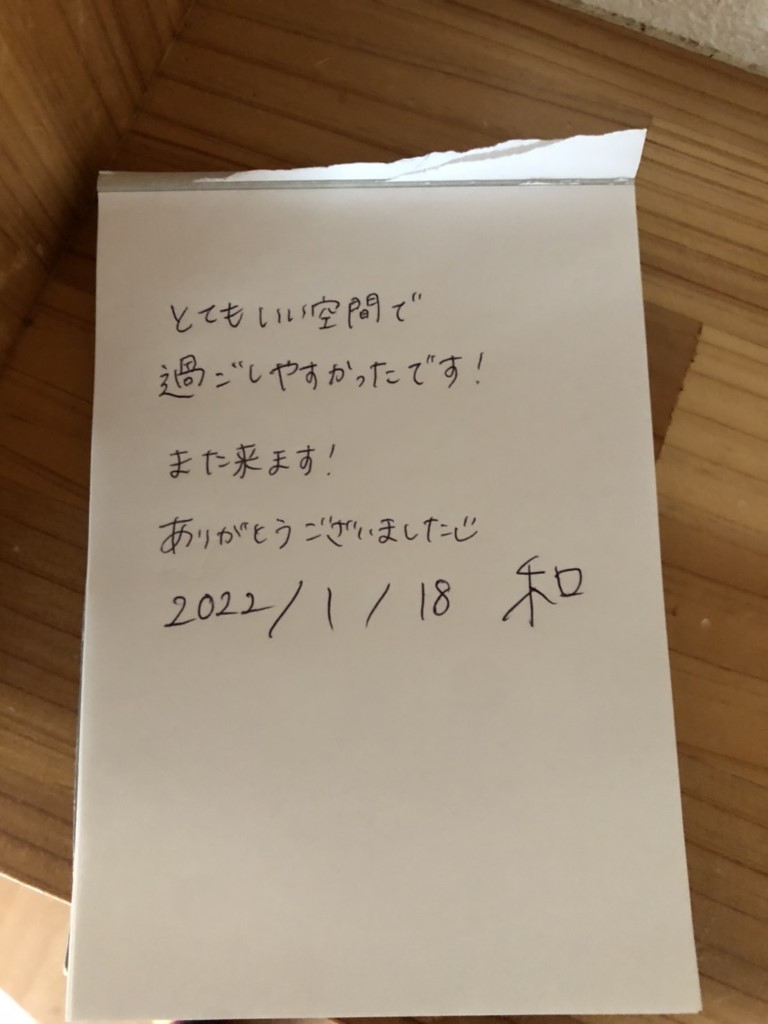 とてもいい空間で
過ごしやすかったです!
また来ます!
ありがとうございました
2022/1/18 和